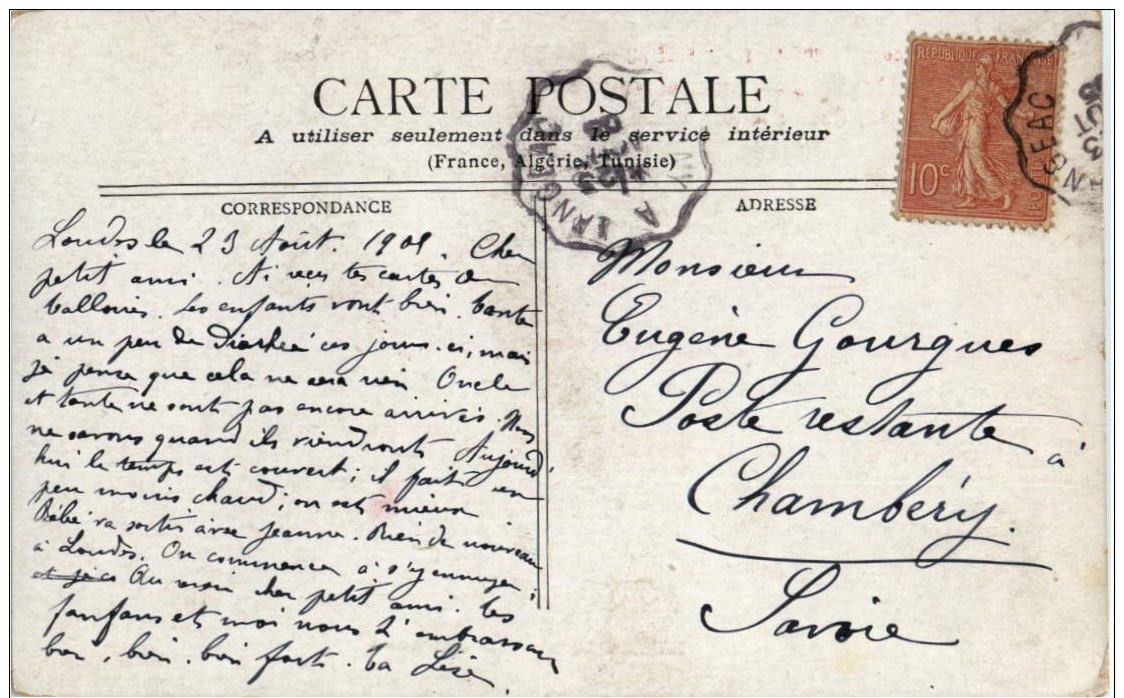 CARTE POSTALE
A utiliser seulement dans le service intérieur
(France, Algérie, Tunisie)
RÉPUBLIQUE FRANÇAISE
10c
CORRESPONDANCE
Loudes le 23 Août. 190 . Cher
petit ami. Ai reçu tes cartes de
Talloires. Les enfants vont bien. Tante
a un peu de diarhée ces jours-ci, mais
je pense que cela ne sera rien Oncle
et tante ne sont pas encore arrivés. Nous
ne savons quand ils viendront Aujourd'
hui le temps est couvert; il fait un
peu moins chaud; on est mieux
Bébé va sortir avec Jeanne. Rien de nouveau
à Loudes. On commence à s'y ennuyer;
Au revoir cher petit ami. tes
fanfans et moi nous t'embrassons
bien, bien, bien fort. ta Lise.
ADRESSE
Monsieur
Eugène Gourgues
Poste restante à
Chambéry.
Savoie
A LANG
GEAC